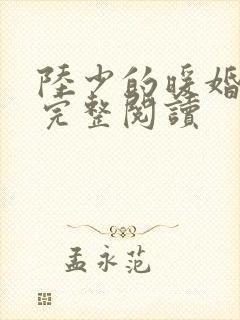 陸少的暖婚
完整閱讀
孟永范